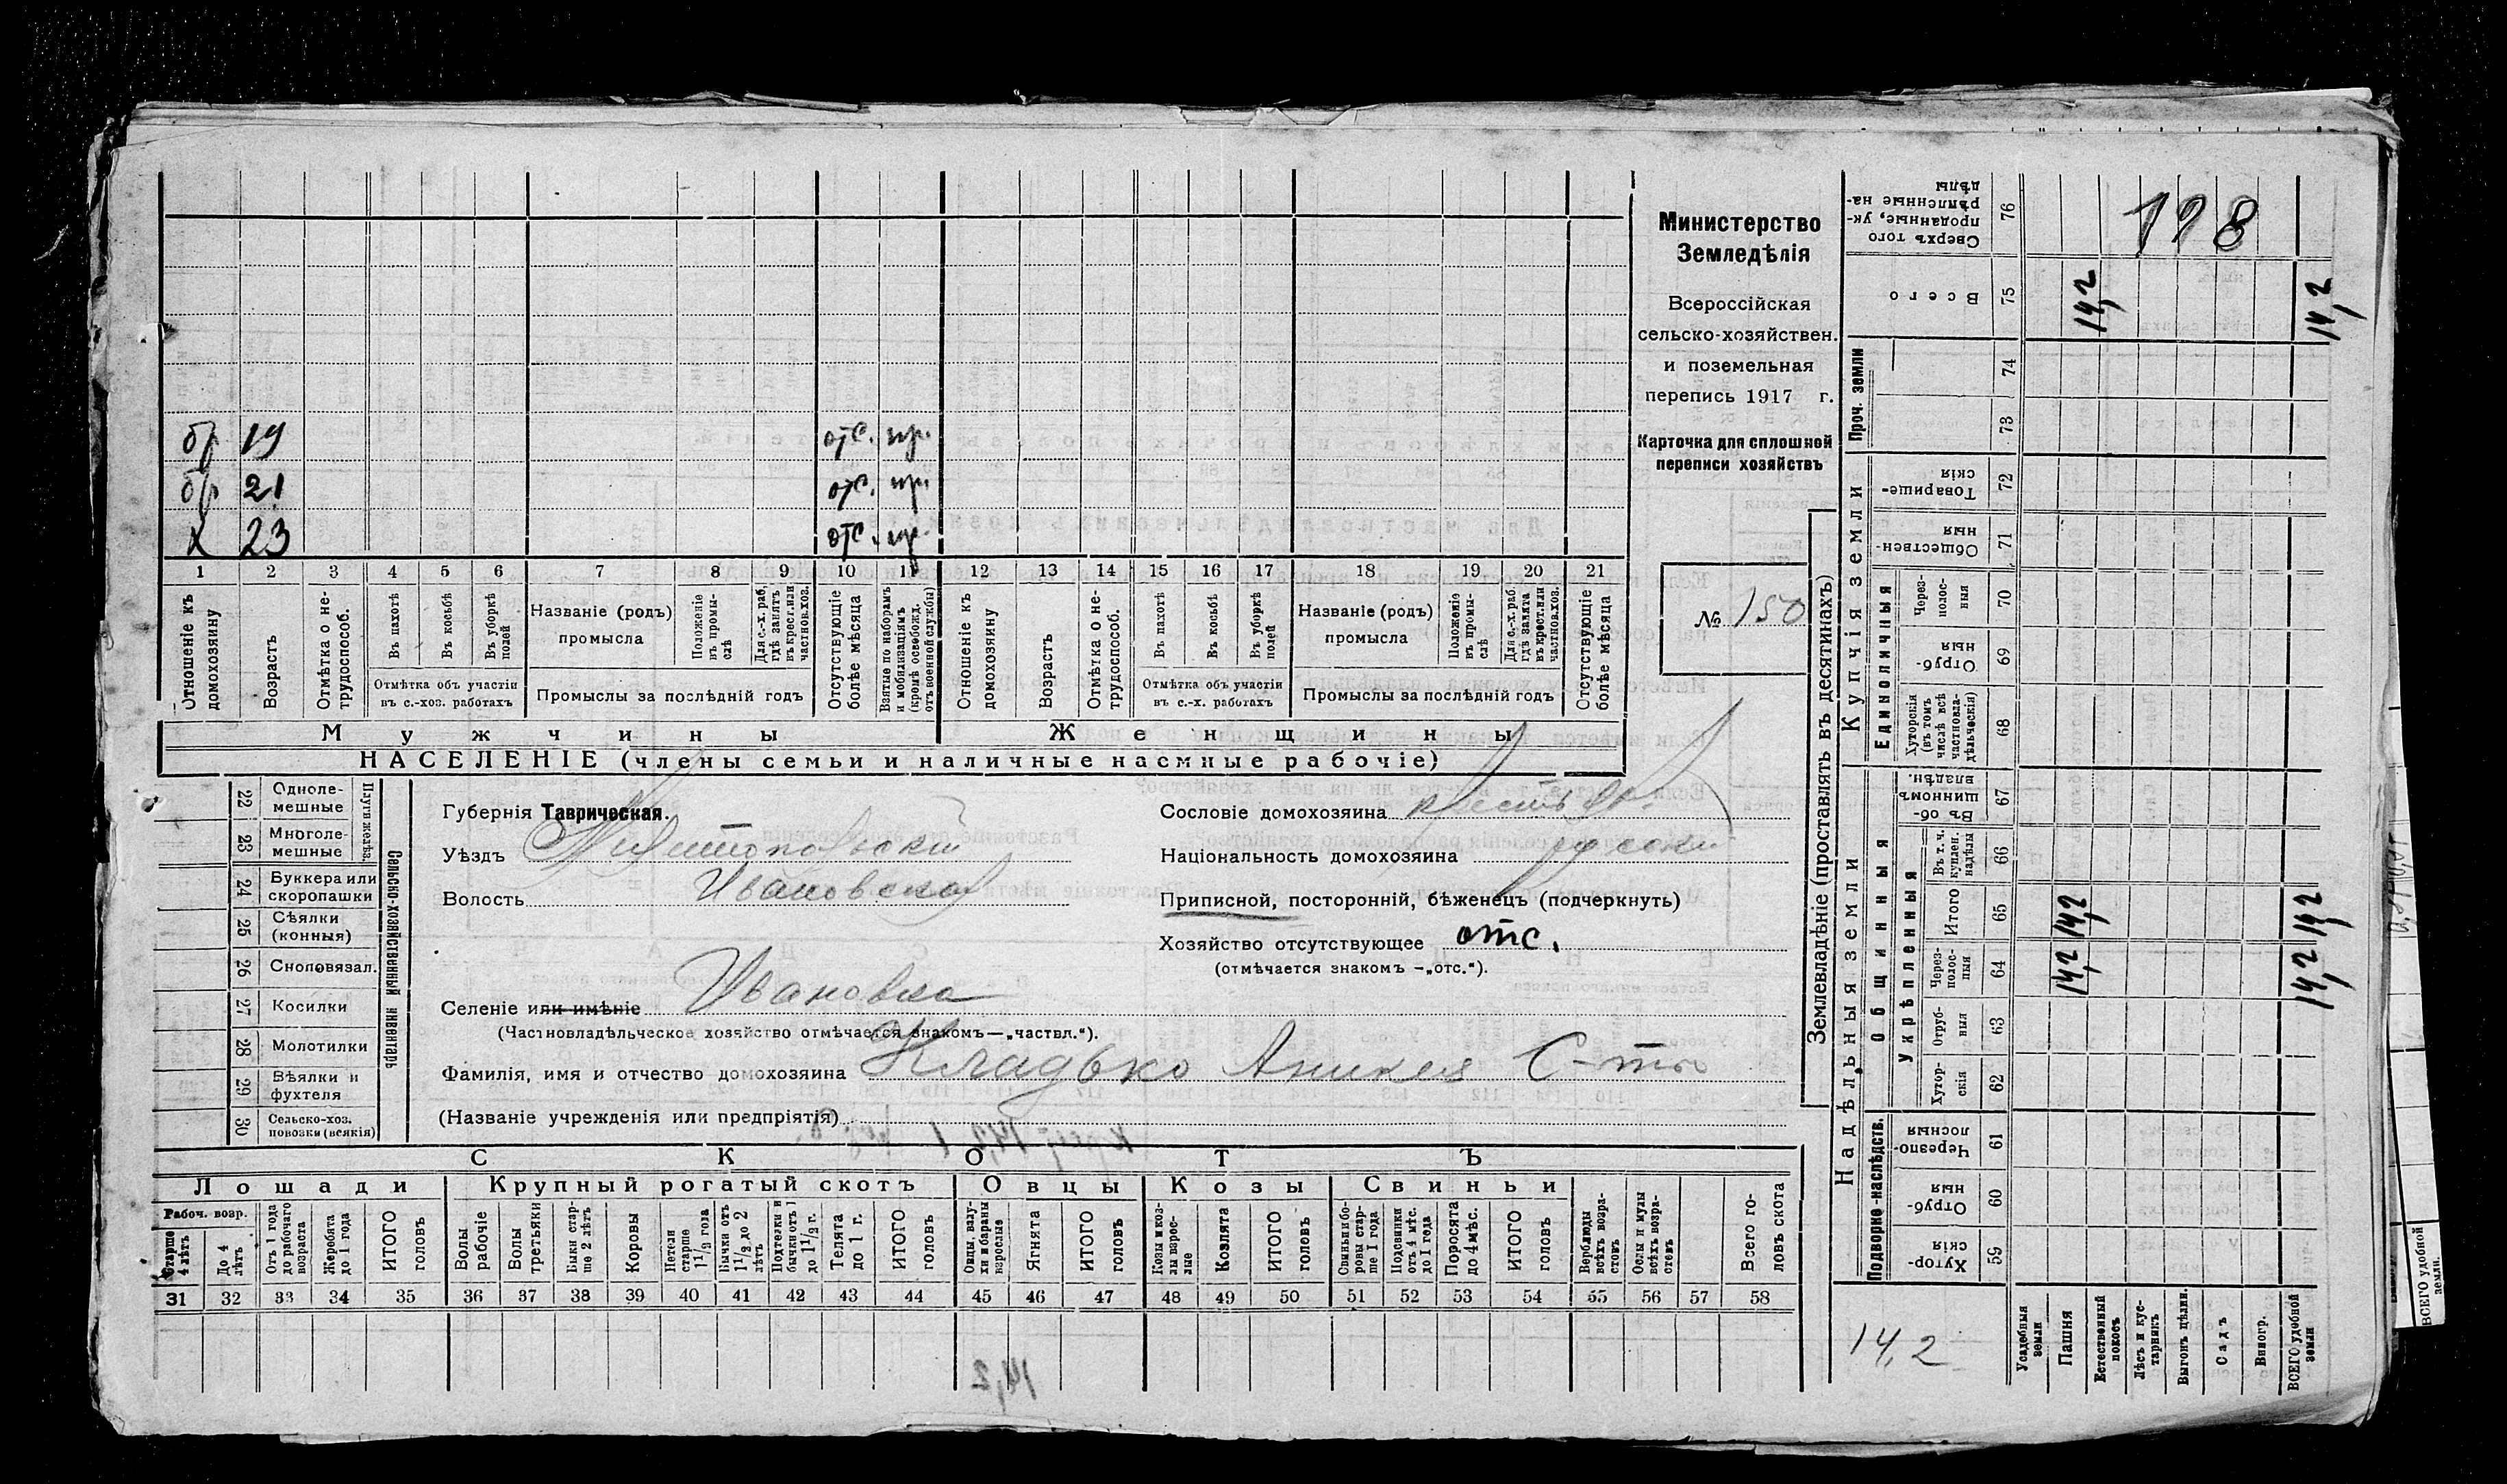 бр 19 отс. пр.
бр 21 отс. пр.
х 23 отс. пр.
1 2 3 4 5 6 7 8 9 10 11 12 13 14 15 16 17 18 19 20 21
Отношеніе къ домохозяину
Возрастъ
Отмѣтка о нетрудоспособ.
Въ пахотѣ
Въ косьбѣ
Въ уборкѣ полей
Отмѣтка объ участіи
въ с.-хоз. работахъ
Названіе (родъ)
промысла
Положеніе въ промыслѣ
Для с.-х. раб. гдѣ занятъ въ крест. или частнов. хоз.
Промыслы за послѣдній годъ
Отсутствующіе болѣе мѣсяца
Взятые по наборамъ и мобилизаціямъ (кромѣ освобожд. отъ военной службы)
Отношеніе къ домохозяину
Возрастъ
Отмѣтка о нетрудоспособ.
Въ пахотѣ
Въ косьбѣ
Въ уборкѣ полей
Отмѣтка объ участіи
въ с.-х. работахъ
Названіе (родъ)
промысла
Положеніе въ промыслѣ
Для с.-х. раб. гдѣ занята въ крест. или частнов. хоз.
Промыслы за послѣдній годъ
Отсутствующіе болѣе мѣсяца
Мужчины
Женщины
НАСЕЛЕНІЕ (члены семьи и наличные наемные рабочіе)
Министерство
Земледѣлія
Всероссійская
сельско-хозяйствен.
и поземельная
перепись 1917 г.
Карточка для сплошной
переписи хозяйствъ
№ 150
22 Одноле-мешные
23 Многоле-мешные
Плуги желѣз.
24 Буккера или скоропашки
25 Сѣялки (конныя)
26 Сноповязал.
27 Косилки
28 Молотилки
29 Вѣялки и фухтеля
30 Сельско-хоз. повозки (всякія)
Сельско-хозяйственный инвентарь
Губернія Таврическая.
Уѣздъ Мелитопольскій
Волость Ивановская
Селеніе или имѣніе Ивановка
(Частновладѣльческое хозяйство отмѣчается знакомъ—„частвл.“).
Фамилія, имя и отчество домохозяина Кладько Аникея С-ты
(Названіе учрежденія или предпріятія)
Сословіе домохозяина
Національность домохозяина русскій
Приписной, посторонній, бѣженецъ (подчеркнуть)
Хозяйство отсутствующее отс.
(отмѣчается знакомъ —„отс.“).
СКОТЪ
Лошади
Крупный рогатый скотъ
Овцы
Козы
Свиньи
Рабоч. возр.
Старше 4 лѣтъ
До 4 лѣтъ
Отъ 1 года до рабочаго возраста
Жеребята до 1 года
ИТОГО головъ
Волы рабочіе
Волы третьяки
Быки старше 2 лѣтъ
Коровы
Нетели старше 1 1/2 года
Бычки отъ 1 1/2 до 2 лѣтъ
Подтелки и бычки отъ 1 до 1 1/2 г.
Телята до 1 г.
ИТОГО головъ
Овцы, валухи и бараны взрослые
Ягнята
ИТОГО головъ
Козы и козлы взрослые
Козлята
ИТОГО головъ
Свиньи и боровы старше 1 года
Подсвинки отъ 4 мѣс. до 1 года
Поросята до 4 мѣс.
ИТОГО головъ
Верблюды всѣхъ возрастовъ
Ослы и мулы всѣхъ возрастовъ
Всего головъ скота
31 32 33 34 35 36 37 38 39 40 41 42 43 44 45 46 47 48 49 50 51 52 53 54 55 56 57 58
14,2
Землевладѣніе (проставлять въ десятинахъ)
Надѣльныя земли
Купчія земли
Проч. земли
Подворно-наслѣдств.
Общинныя
Укрѣпленныя
Единоличныя
Хуторскія 59
Отрубныя 60
Черезполосныя 61
Хуторскія 62
Отрубныя 63
Черезполосныя 64 14,2 14,2
Итого 65 14,2 14,2
Въ т. ч. куплен. надѣлы 66
Въ общинномъ владѣн. 67
Хуторскія (въ томъ числѣ всѣ частновладѣльческія) 68
Отрубныя 69
Черезполосныя 70
Общественныя 71
Товарищескія 72
73
74
Всего 75 14,2 14,2
Сверхъ того проданные, укрѣпленные надѣлы 76
198
14,2
Усадебныя земли
Пашня
Естественный покосъ
Лѣсъ и кустарникъ
Выгонъ цѣлин.
Садъ
Виногр.
ВСЕГО удобной земли
ВСЕГО удобной земли.